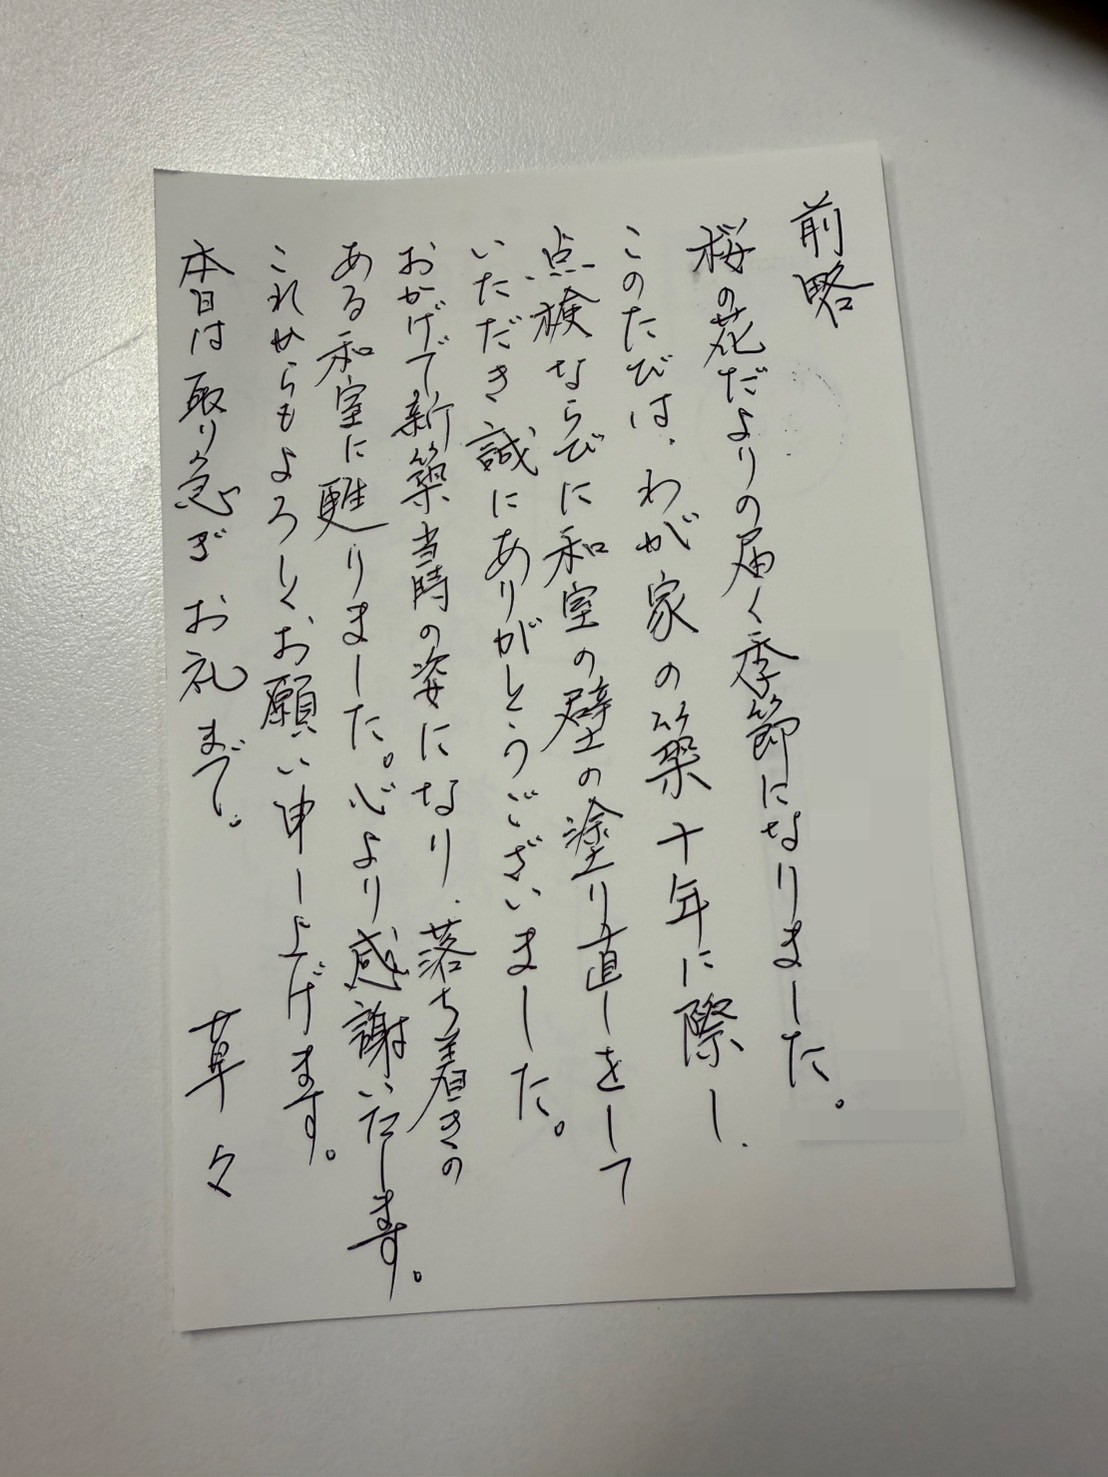 前略
桜の花だよりの届く季節になりました。
このたびは、わが家の築十年に際し、
点検ならびに和室の壁の塗り直しをして
いただき誠にありがとうございました。
おかげで新築当時の姿になり、落ち着きの
ある和室に甦りました。心より感謝いたします。
これからもよろしくお願い申し上げます。
本日は取り急ぎお礼まで。 草々